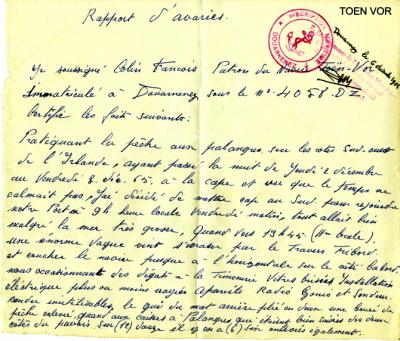 TOEN VOR
Rapport d'avaries.
INSCRIPTION MARITIME
DOUARNENEZ
Douarnenez le 6 
Je soussigné Colin Francois Patron du Navire Toën-Vor
Immatriculé à Douarnenez sous le n° 4058.DZ
Certifie les fait suivants:
Pratiquant la pêche aux palangres, sur les côtes Sud-ouest
de l'Irlande, ayant passé la nuit de Jeudi 2 décembre
au Vendredi 3. déc. 65, à la cape et vu que le temps ne
calmait pas, J'ai décidé de mettre cap au Sud, pour rejoindre
notre Port à 9h heure locale Vendredi matin, tout allait bien
malgré la mer très grosse, Quand vers 13h45 (Hre locale).
une énorme Vague vint s'écraser par le Travers Tribord
et coucher le navire jusque à l'horizontale sur le côté babord
nous occasionnant des dégats à la Timonerie Vitres brisées Installation
éléctrique plus ou moins noyée Appareils Radio Gonio et Sondeur
rendu inutilisables, le gui du mat arrière plié en deux une bouée de
pêche enlevé, quand aux caisses à Palangres qui étaient bien des deux
côtés du pavois, sur (12) douze il y en a (6) six enlevés également.